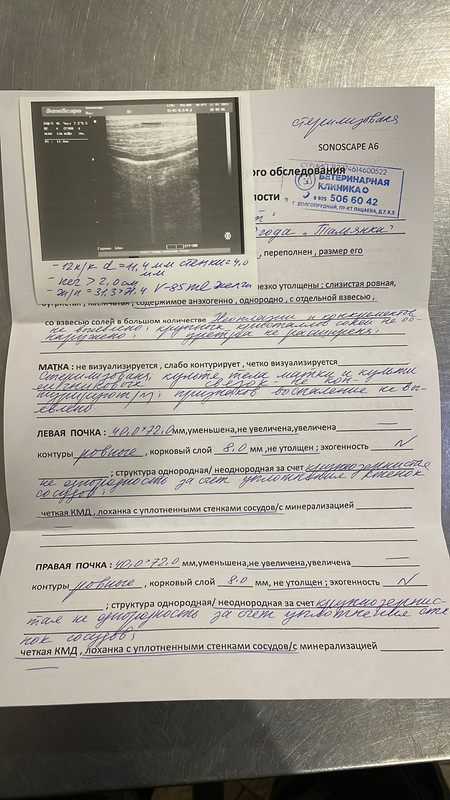 SonoScape
стерилизована
SONOSCAPE A6
ого обследования
ВЕТЕРИНАРНАЯ
КЛИНИКА
8 925 506 60 42
Г. ДОЛГОПРУДНЫЙ, ПР-КТ ПАЦАЕВА, Д.7, К.5
ности
года "Тальянка"
, переполнен , размер его
- 12п/к d = 11,4 мм стенки = 4,0
мм
- > 2,0 см
- ж/п = 31,3 × V - 85 ml
езко утолщены ; слизистая ровная,
, содержимое анэхогенно , однородно , с отдельной взвесью ,
со взвесью солей в большом количестве Неоплазии и конкременты
не выявлено; крупных кристаллов солей не об-
наружено! Уретра не расширена!
МАТКА : не визуализируется , слабо контурирует , четко визуализируется
Стерилизована; культя тела матки и культи
яичниковых связок - не кон-
турируют(ся); признаков воспаление не вы-
явлено
ЛЕВАЯ ПОЧКА : 40,0*72,0 мм,уменьшена,не увеличена,увеличена —
контуры ровные , корковый слой 8.0 мм ,не утолщен ; эхогенность N
; структура однородная/ неоднородная за счет крупнозернистая
не однородность за счет уплотнения стенок
сосудов;
четкая КМД , лоханка с уплотненными стенками сосудов/с минерализацией
ПРАВАЯ ПОЧКА : 40,0*72,0 мм,уменьшена,не увеличена,увеличена —
контуры ровные , корковый слой 8.0 мм, не утолщен ; эхогенность N
; структура однородная/ неоднородная за счет крупнозернис-
тая не однородность за счет уплотнения сте
нок сосудов;
четкая КМД , лоханка с уплотненными стенками сосудов/с минерализацией